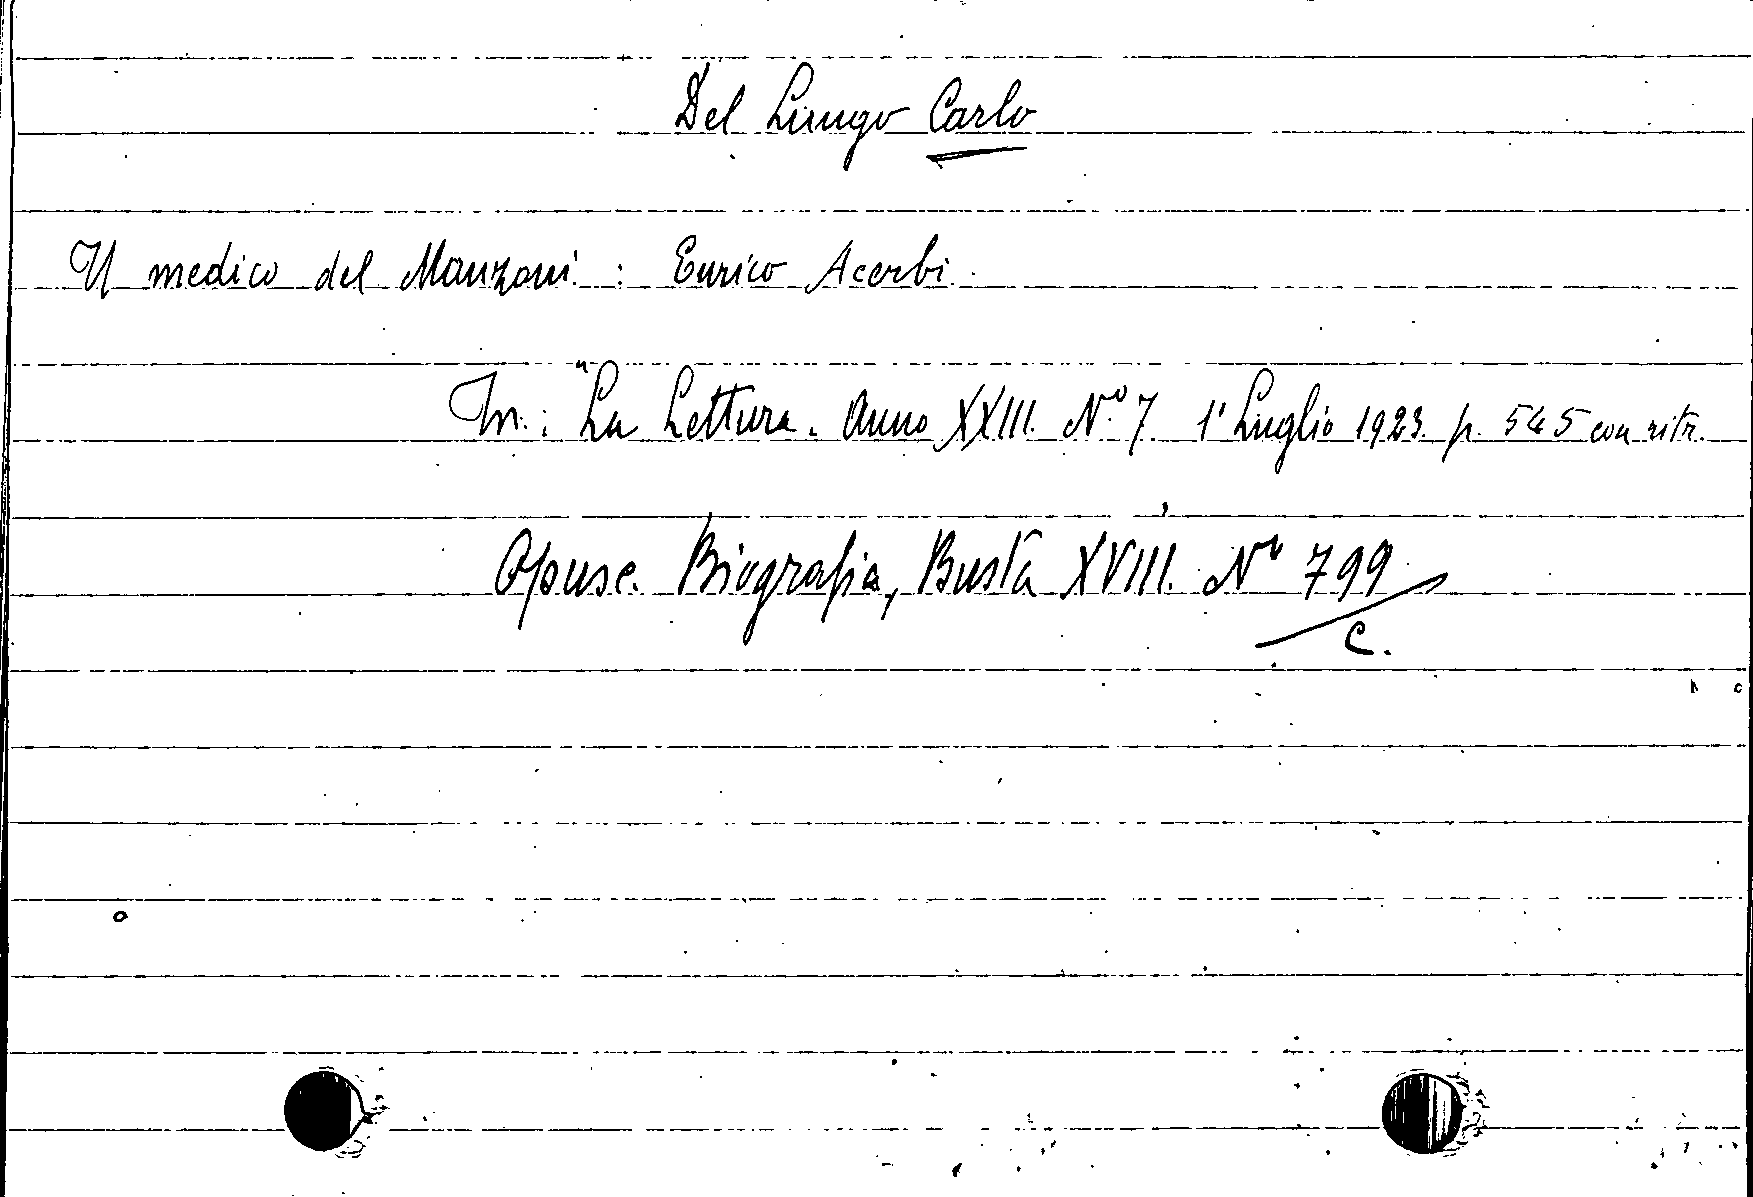 Del Lungo Carlo
Il medico del Manzoni: Enrico Acerbi.
In: "La Lettura. Anno XXIII. N.º 7. 1º Luglio 1923. p. 545 con ritr.
Opusc. Biografia, Busta XVIII. Nº 799
C.